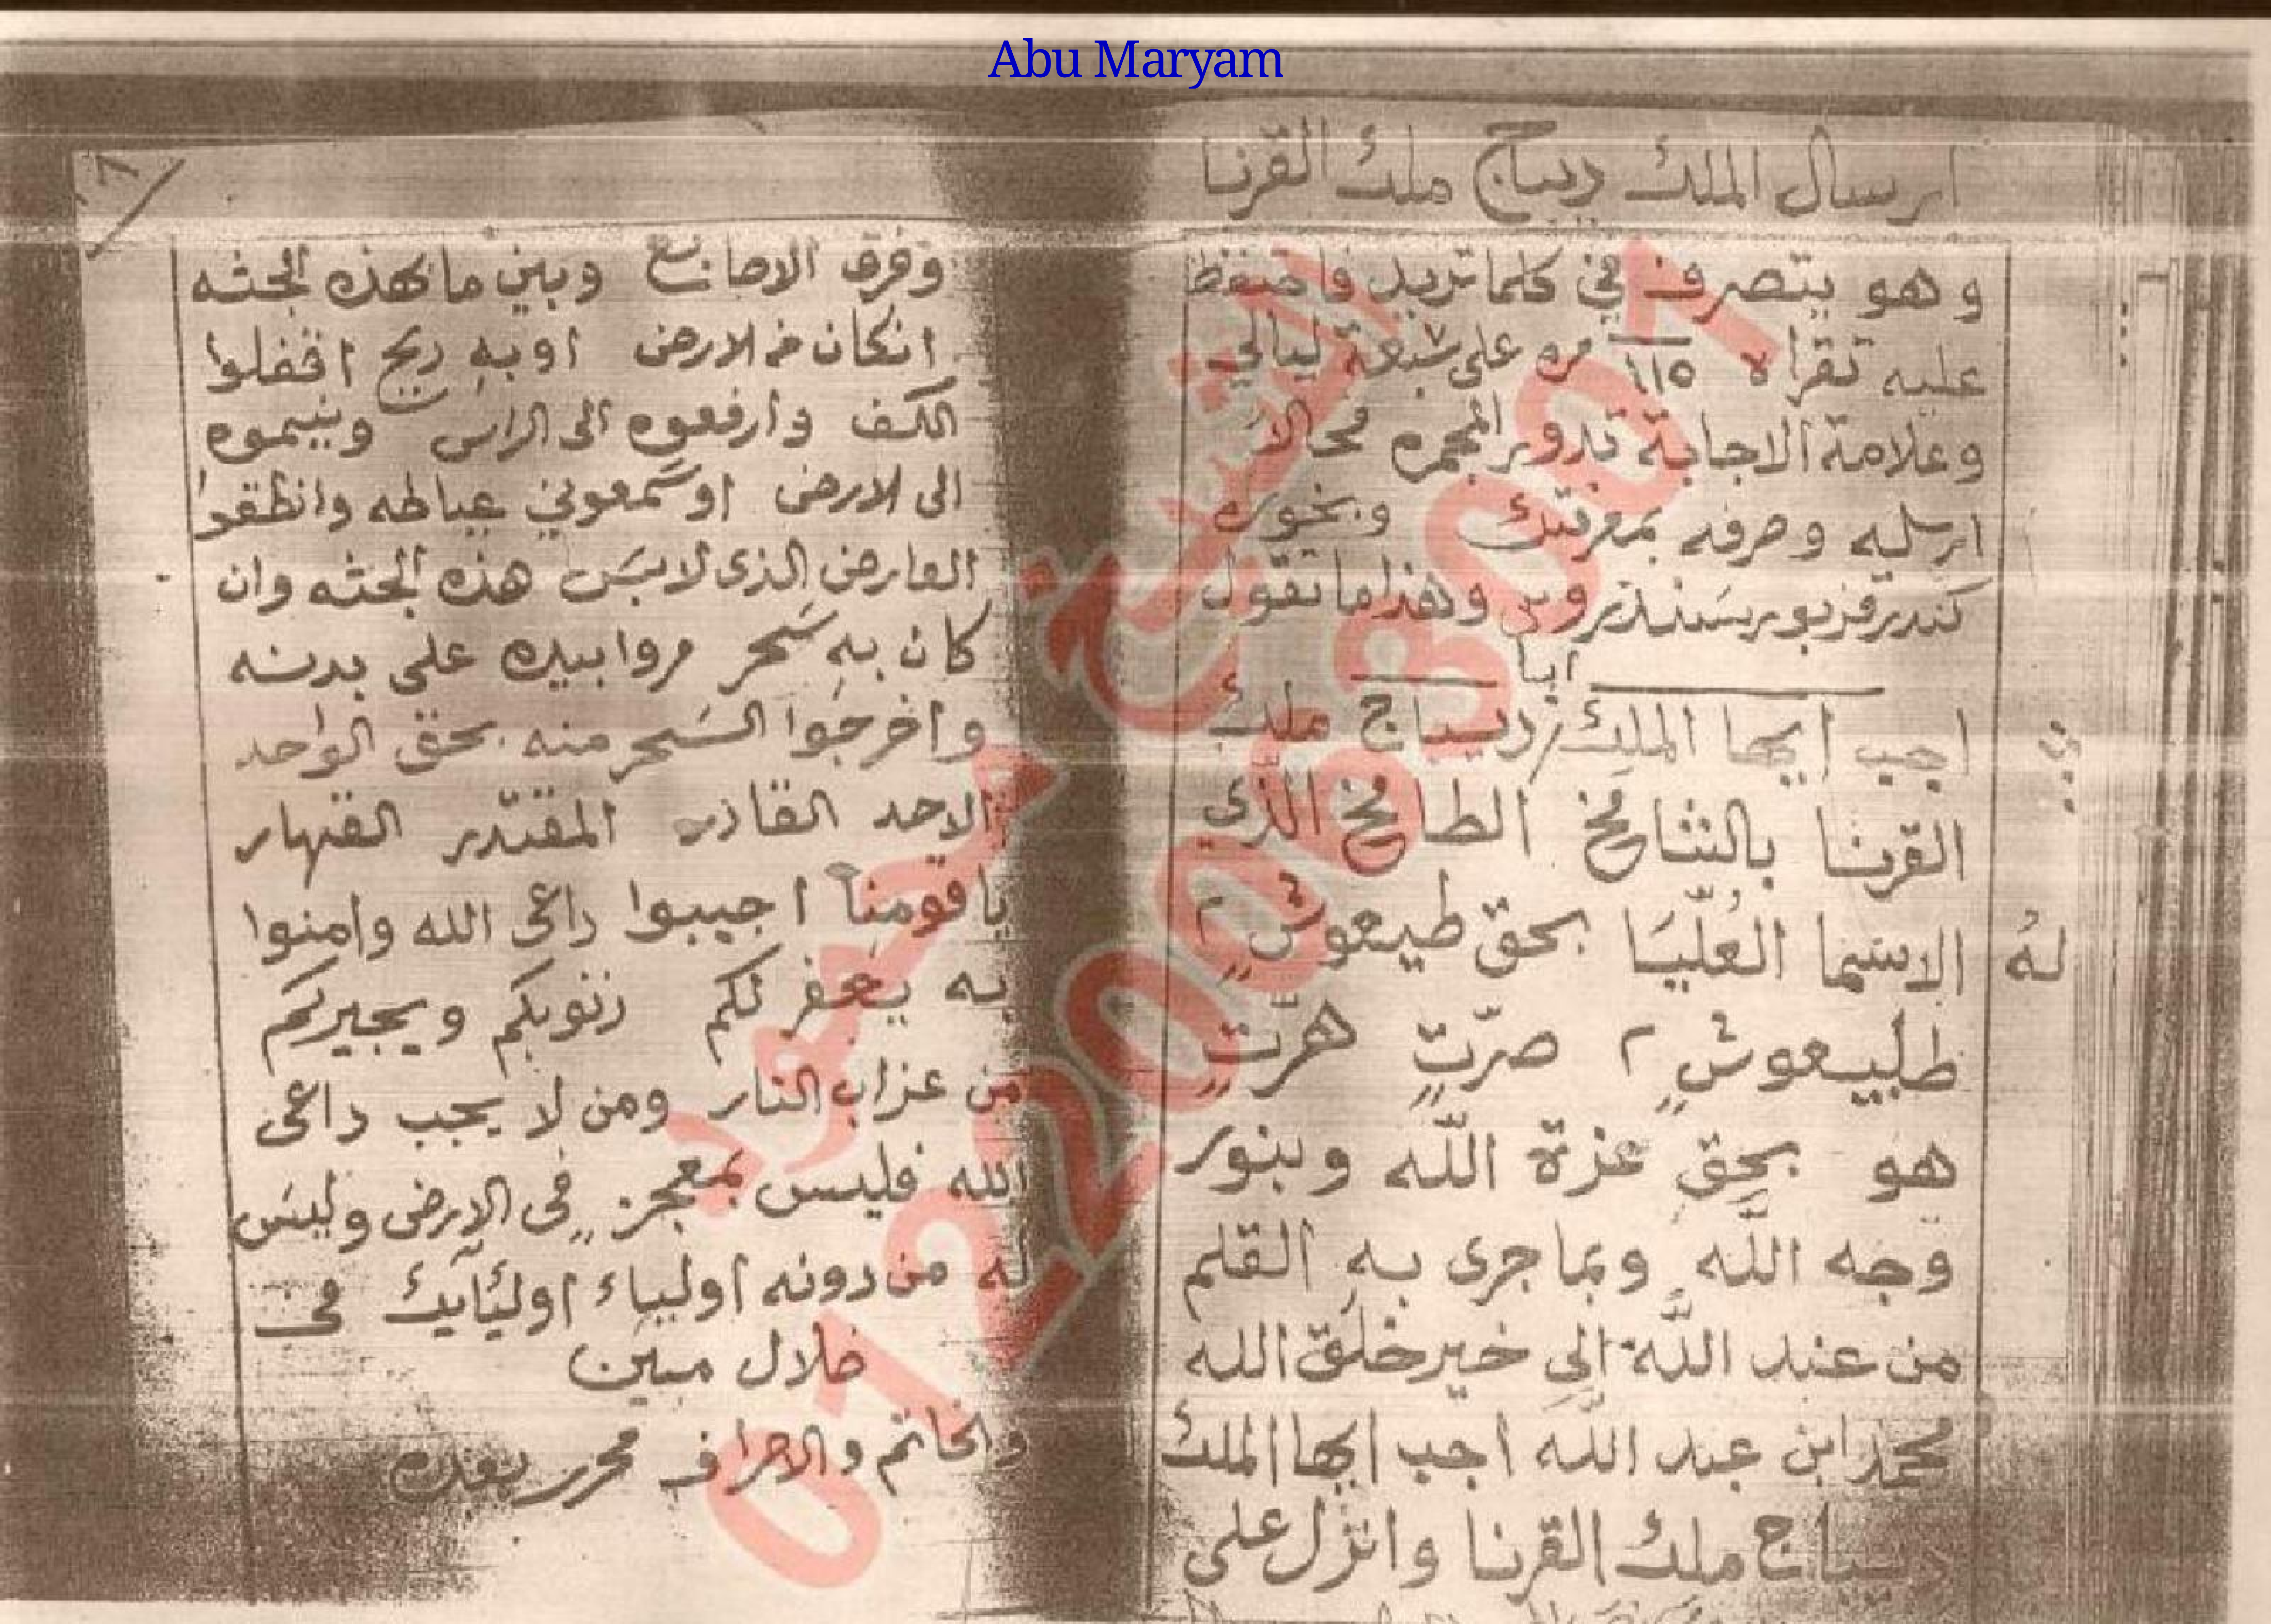 Abu Maryam
ارسال الملك ديباج ملك القرنا
وهو يتصرف في كلما تريد فاحتفظ
عليه تقراه ١١٥ مره على سبعة ليالي
وعلامة الاجابة تدوير المجمره فحالا
ارسليه وصرفه بمعرفتك وبخوره
وهذا ما تقول
ايا
اجب ايها الملك ديباج ملك
القرنا بالشامخ الطامخ الذي
له الاسما العليا بحق طيعوش ٢
طليعوش ٢ صرت هرت
هو بحق عزة الله وبنور
وجه الله وبما جرى به القلم
من عند الله الى خير خلق الله
محمد ابن عبد الله اجب ايها الملك
ديباج ملك القرنا وانزل على
وفرق الاصابع وبين ما بهذه الجثه
انكان من الارض او به ريح اقفلوا
الكف وارفعوه الى الراس
الى الارض او سمعوني عياطه وانطقوا
العارض الذى لابس هذه الجثه وان
كان به سحر مروا بيده على بدنه
واخرجوا السحر منه بحق الواحد
الاحد القادر المقتدر القهار
يا قومنا اجيبوا داعى الله وامنوا
به يغفر لكم ذنوبكم ويجيركم
من عزاب النار ومن لا يجب داعى
الله فليس بمعجز فى الارض وليس
له من دونه اولياء اوليايك فى
ضلال مبين
والخاتم والاحراف محرر بعده
الشيخ محمود
01220063001